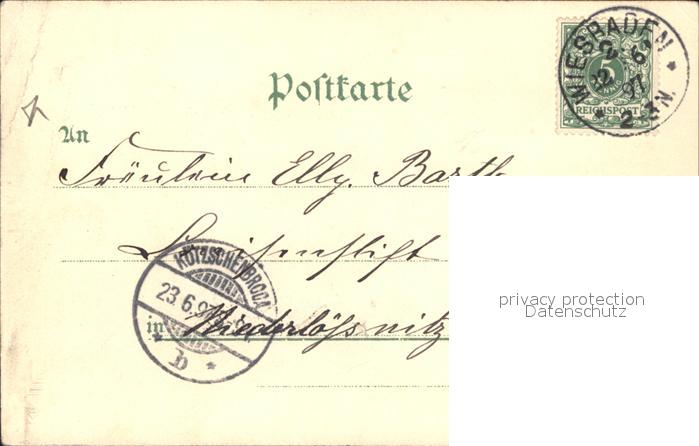 WIESBADEN
22 6 97
2-3N.
5
PFENNIG
REICHSPOST
Postkarte
An
Fräulein Elly. Barth
Luisenstift
KÖTZSCHENBRODA
23.6.97
in Niederlössnitz
b
privacy protection
Datenschutz